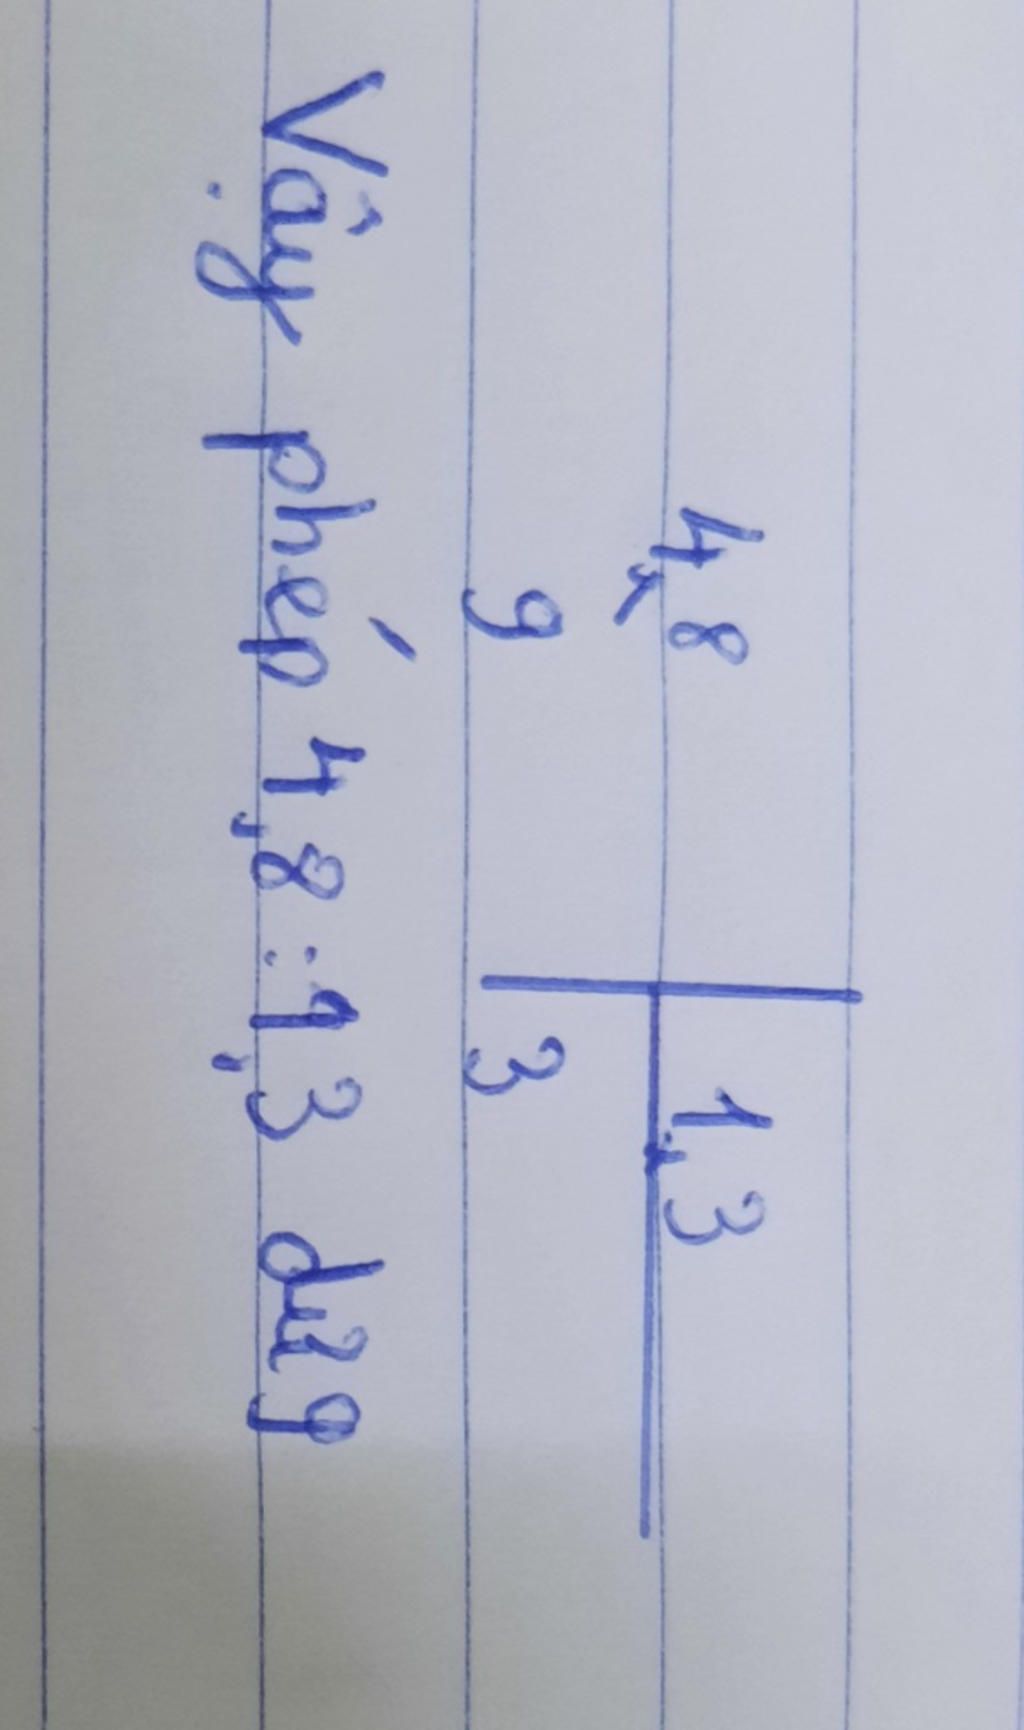 4,8 1,3
9 3
Vậy phép 4,8 : 1,3 dư 9